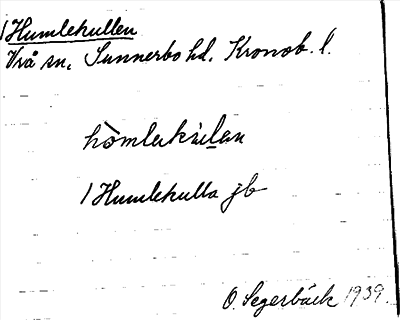 /Humlekullen
Vrå sn, Sunnerbo hd. Kronob. l.
/Humlekulla jb
O. Segerbäck 1939.